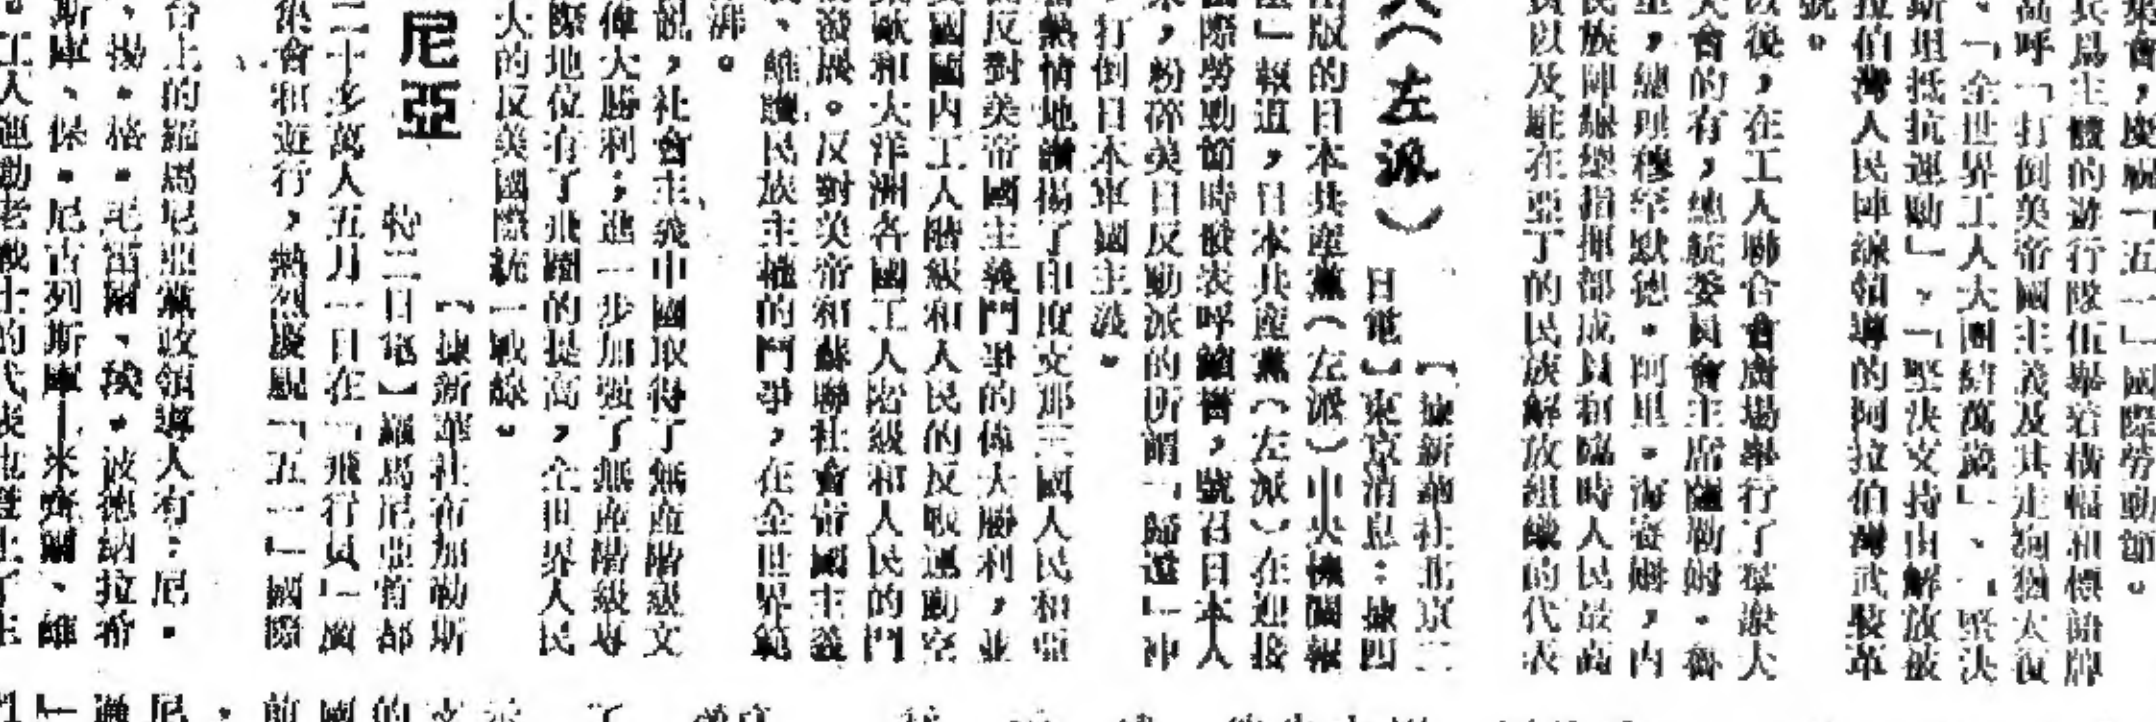 集會，慶祝「五一」國際勞動節。
長爲主體的遊行隊伍舉着橫幅和標語牌
高呼「打倒美帝國主義及其走狗猶太復
、「全世界工人大團結萬歲」、「堅決
斯坦抵抗運動」，「堅決支持由解放被
拉伯灣人民陣線領導的阿拉伯灣武裝革
號。
以後，在工人聯合會廣場舉行了羣衆大
大會的有，總統委員會主席薩勒姆·魯
里，總理穆罕默德·阿里·海賽姆，內
民族陣線總指揮部成員和臨時人民最高
員以及駐在亞丁的民族解放組織的代表
（左派）
【據新華社北京二
日電】東京消息：據四
出版的日本共產黨（左派）中央機關報
」報道，日本共產黨（左派）在迎接
國際勞動節時發表呼籲書，號召日本人
來，粉碎美日反動派的所謂「歸還」沖
打倒日本軍國主義。
熱情地讚揚了印度支那三國人民和亞
反對美帝國主義鬥爭的偉大勝利，並
美國國內工人階級和人民的反戰運動空
歐和大洋洲各國工人階級和人民的鬥
發展。反對美帝和蘇聯社會帝國主義
、維護民族主權的鬥爭，在全世界範
湃。
說，社會主義中國取得了無產階級文
偉大勝利；進一步加強了無產階級專
際地位有了飛躍的提高，全世界人民
大的反美國際統一戰線。
尼亞
【據新華社布加勒斯
特二日電】羅馬尼亞首都
二十多萬人五月一日在「飛行員」廣
集會和遊行，熱烈慶祝「五一」國際
台上的羅馬尼亞黨政領導人有：尼·
、揚·格·毛雷爾、埃·波德納拉希
斯庫、保·尼古列斯庫—米齊爾、維
。工人運動老戰士的代表也登上了主